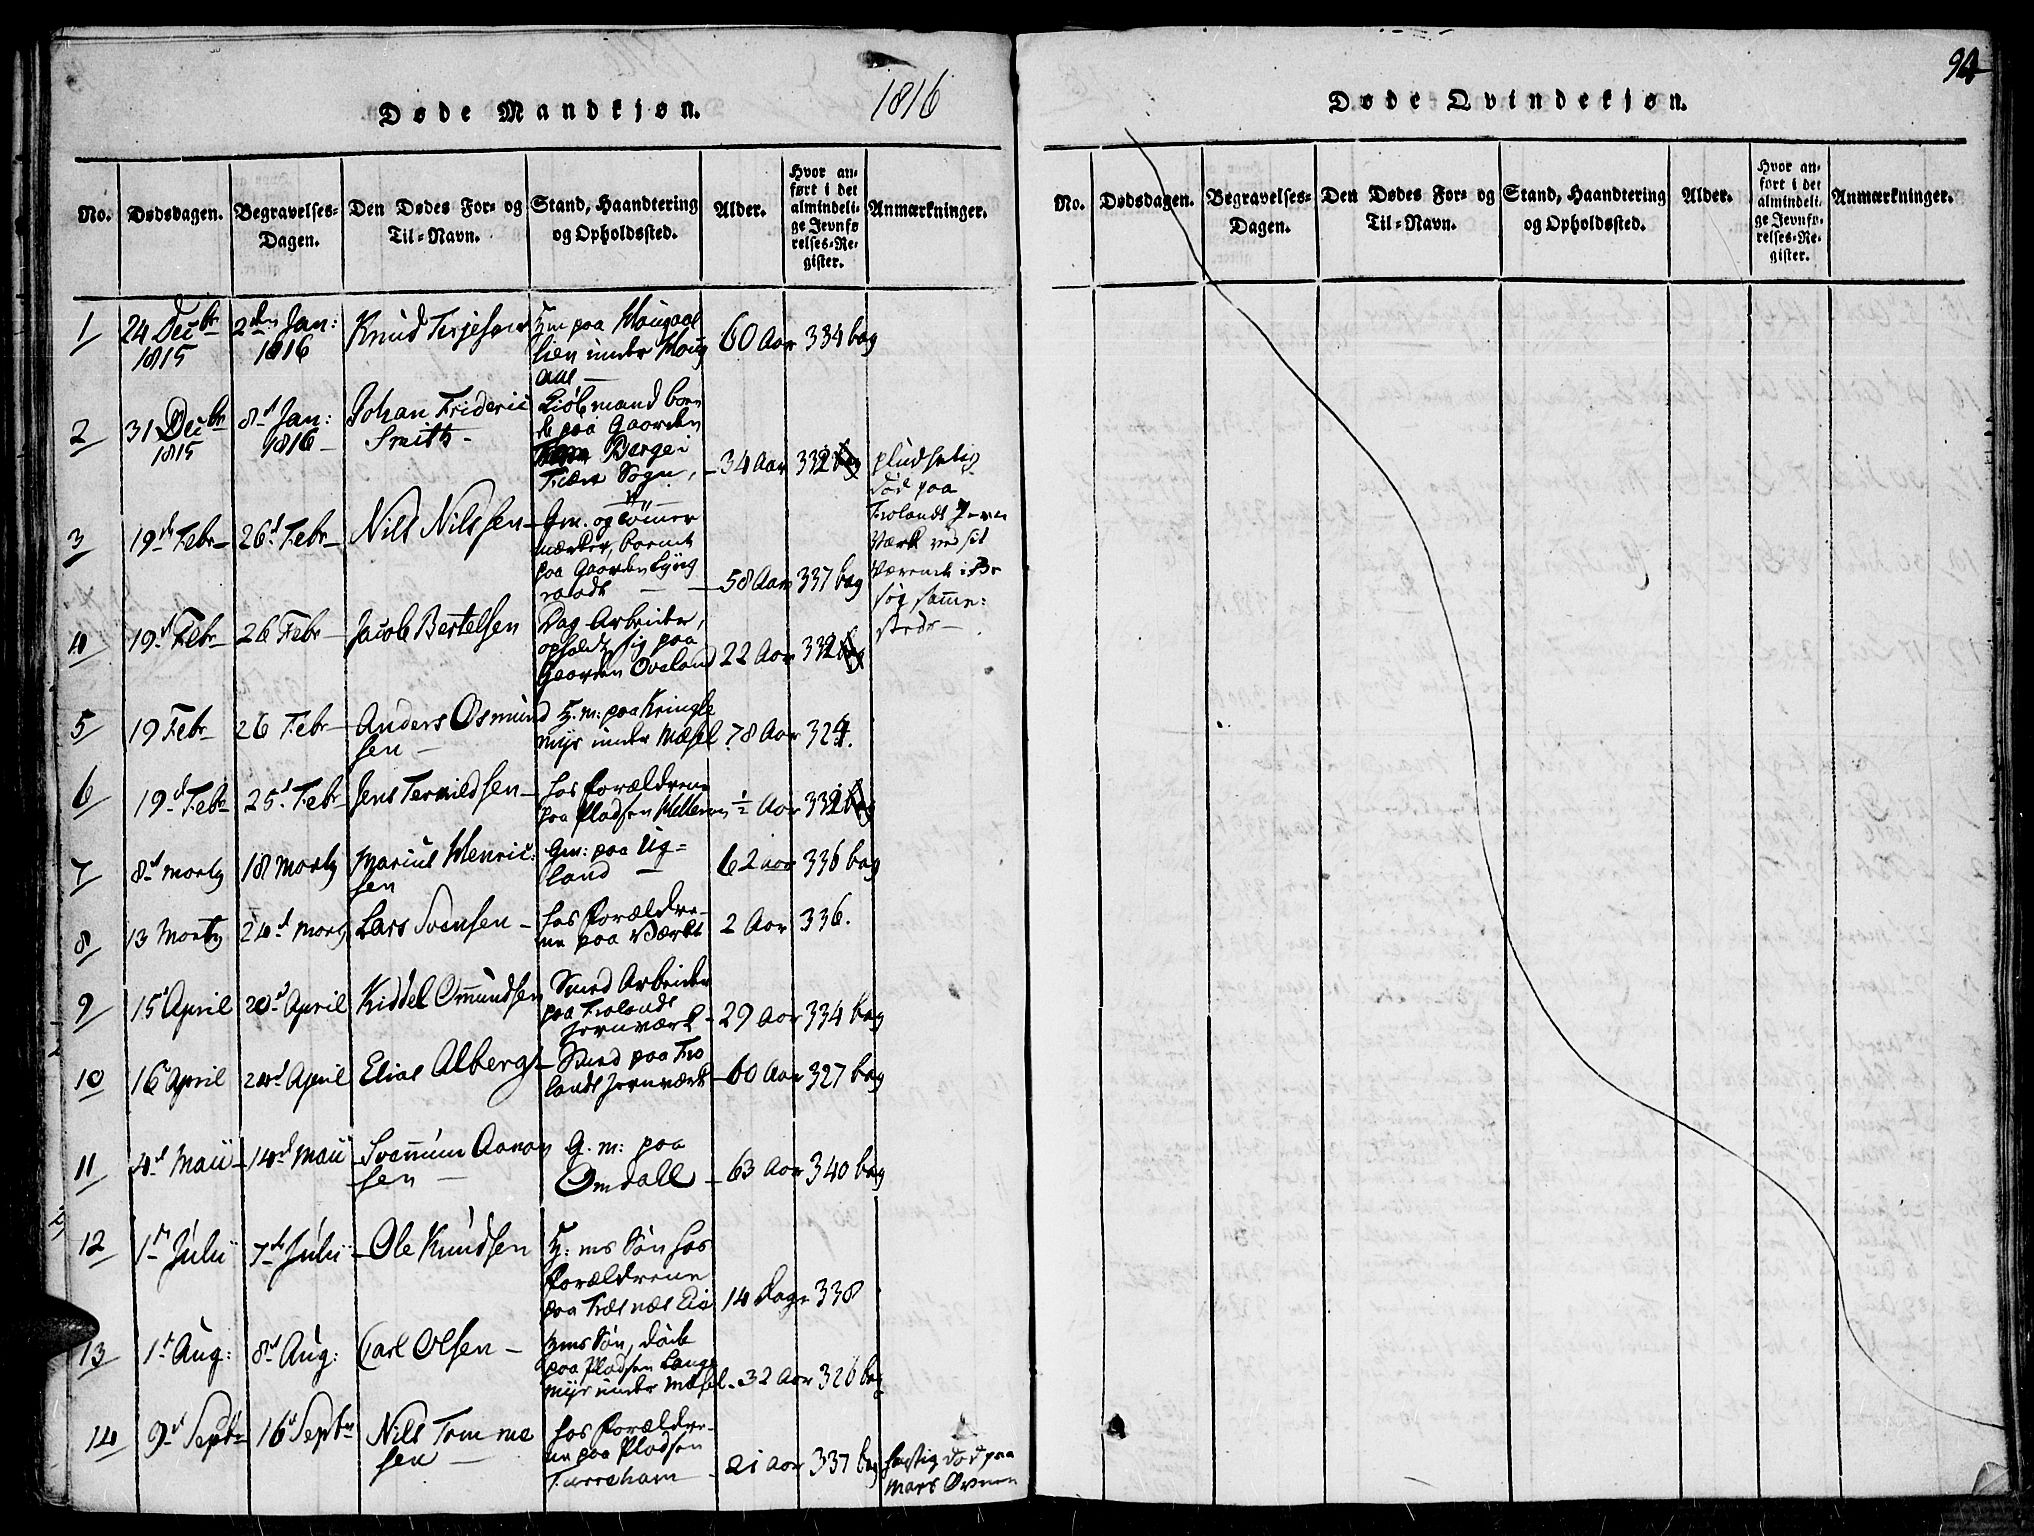 1816
94
Døde Mandkjøn.
No. Dødsdagen. Begravelses-Dagen. Den Dødes For- og Til-Navn. Stand, Haandtering og Opholdssted. Alder. Hvor anført i det almindelige Jevnførelses-Register. Anmærkninger.
1 24 Decbr 1815 2den Jan: 1816 Knud Terjesen Hm paa under 60 Aar 334 bag
2 31 Decbr 1815 8d Jan: 1816 Johan Frideric Smith paa Gaarden Berge i Sogn, 34 Aar 332 pludselig død paa Frolands Jern Værk ved sit Værende i Be søg samme: steds
3 19d Febr 26d Febr Nils Nilssen Gm. og tømmer mærker, boende paa Gaarden 58 Aar 337 bag
4 19d Febr 26 Febr Jacob Bertelsen Dag Arbeider, opholdt sig paa Gaarden Oveland 22 Aar 332
5 19 Febr 26 Febr Anders Osmund sen H.m: paa Kringle myr under Mæsel 78 Aar 324.
6 19d Febr 25d Febr Jens Terkildsen hos Forældrene paa Pladsen ½ Aar 332
7 8d Marty 18 Marty Marius Henric: sen Gm: paa Ug= land 62 aar 336 bag
8 13 Marty 24d Marty Lars Svensen hos Forældre- ne paa Værket 2 Aar 336.
9 15d April 20d April Kiddel Omundsen Smed Arbeider paa Frolands Jernværk 29 Aar 334 bag
10 16d April 24d April Elias Alberg Smed paa Fro lands Jernværk 60 Aar 327 bag
11 4d Maii 14d Maii Svennum Aanon sen G. m: paa Omdall 63 Aar 340 bag
12 1st Julii 7de Julii Ole Knudsen H: ms Søn hos Forældrene paa Træsnæs Eie 14 Dage 338
13 1st Aug: 8d Aug: Carl Olsen Hms Søn, døde paa Pladsen Lange myr under Mæsel 32 Aar 326 bag
14 9d Septr 16d Septbr Nils Tomme sen hos Forældre- ne paa Pladsen 21 Aar 337 bag hastig død paa Mars Ovnen
Døde Qvindekjøn.
No. Dødsdagen. Begravelses-Dagen. Den Dødes For- og Til-Navn. Stand, Haandtering og Opholdssted. Alder. Hvor anført i det almindelige Jevnførelses-Register. Anmærkninger.